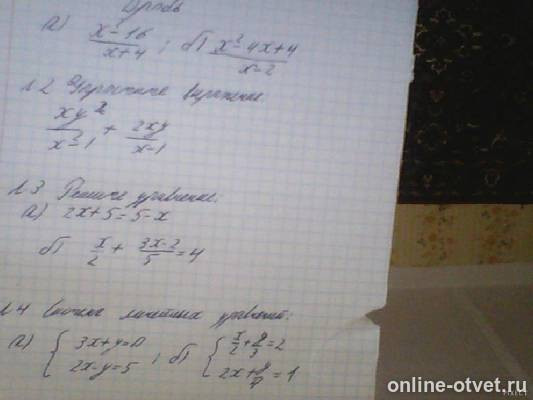 Дробь
а) x²-16/x+4 ; б) x²-4x+4/x-2
№2 Упростите выражение
xy²/x²-1 + 2xy/x-1
№3 Решите уравнение:
а) 2x+5=5-x
б) x/2 + 3x-2/5 = 4
№4 линейных уравнений:
а) { 3x+y=0 2x-y=5 ; б) { x/2+y/3=2 2x+y/4=1
online-otvet.ru